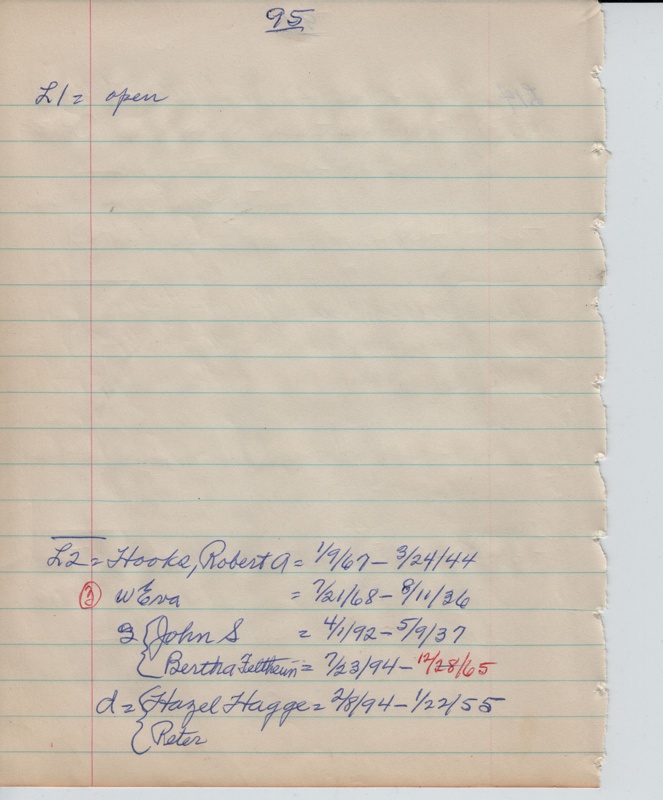 95
L1 = open
L2 = Hooks, Robert A = 1/9/67 - 3/24/44
3 w Eva = 7/21/68 - 8/11/36
John S = 4/1/92 - 5/9/37
Bertha = 7/23/94 - 12/28/65
d = Hazel Hagge = 2/8/94 - 1/22/55
Peter